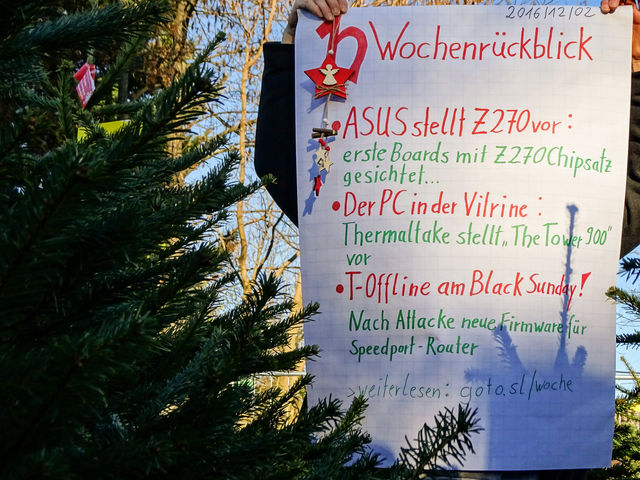 2016/12/02
Wochenrückblick
• ASUS stellt Z270 vor:
erste Boards mit Z270 Chipsatz
gesichtet...
• Der PC in der Vitrine:
Thermaltake stellt „The Tower 900"
vor
• T-Offline am Black Sunday!
Nach Attacke neue Firmware für
Speedport-Router
>weiterlesen: goto.sl/woche